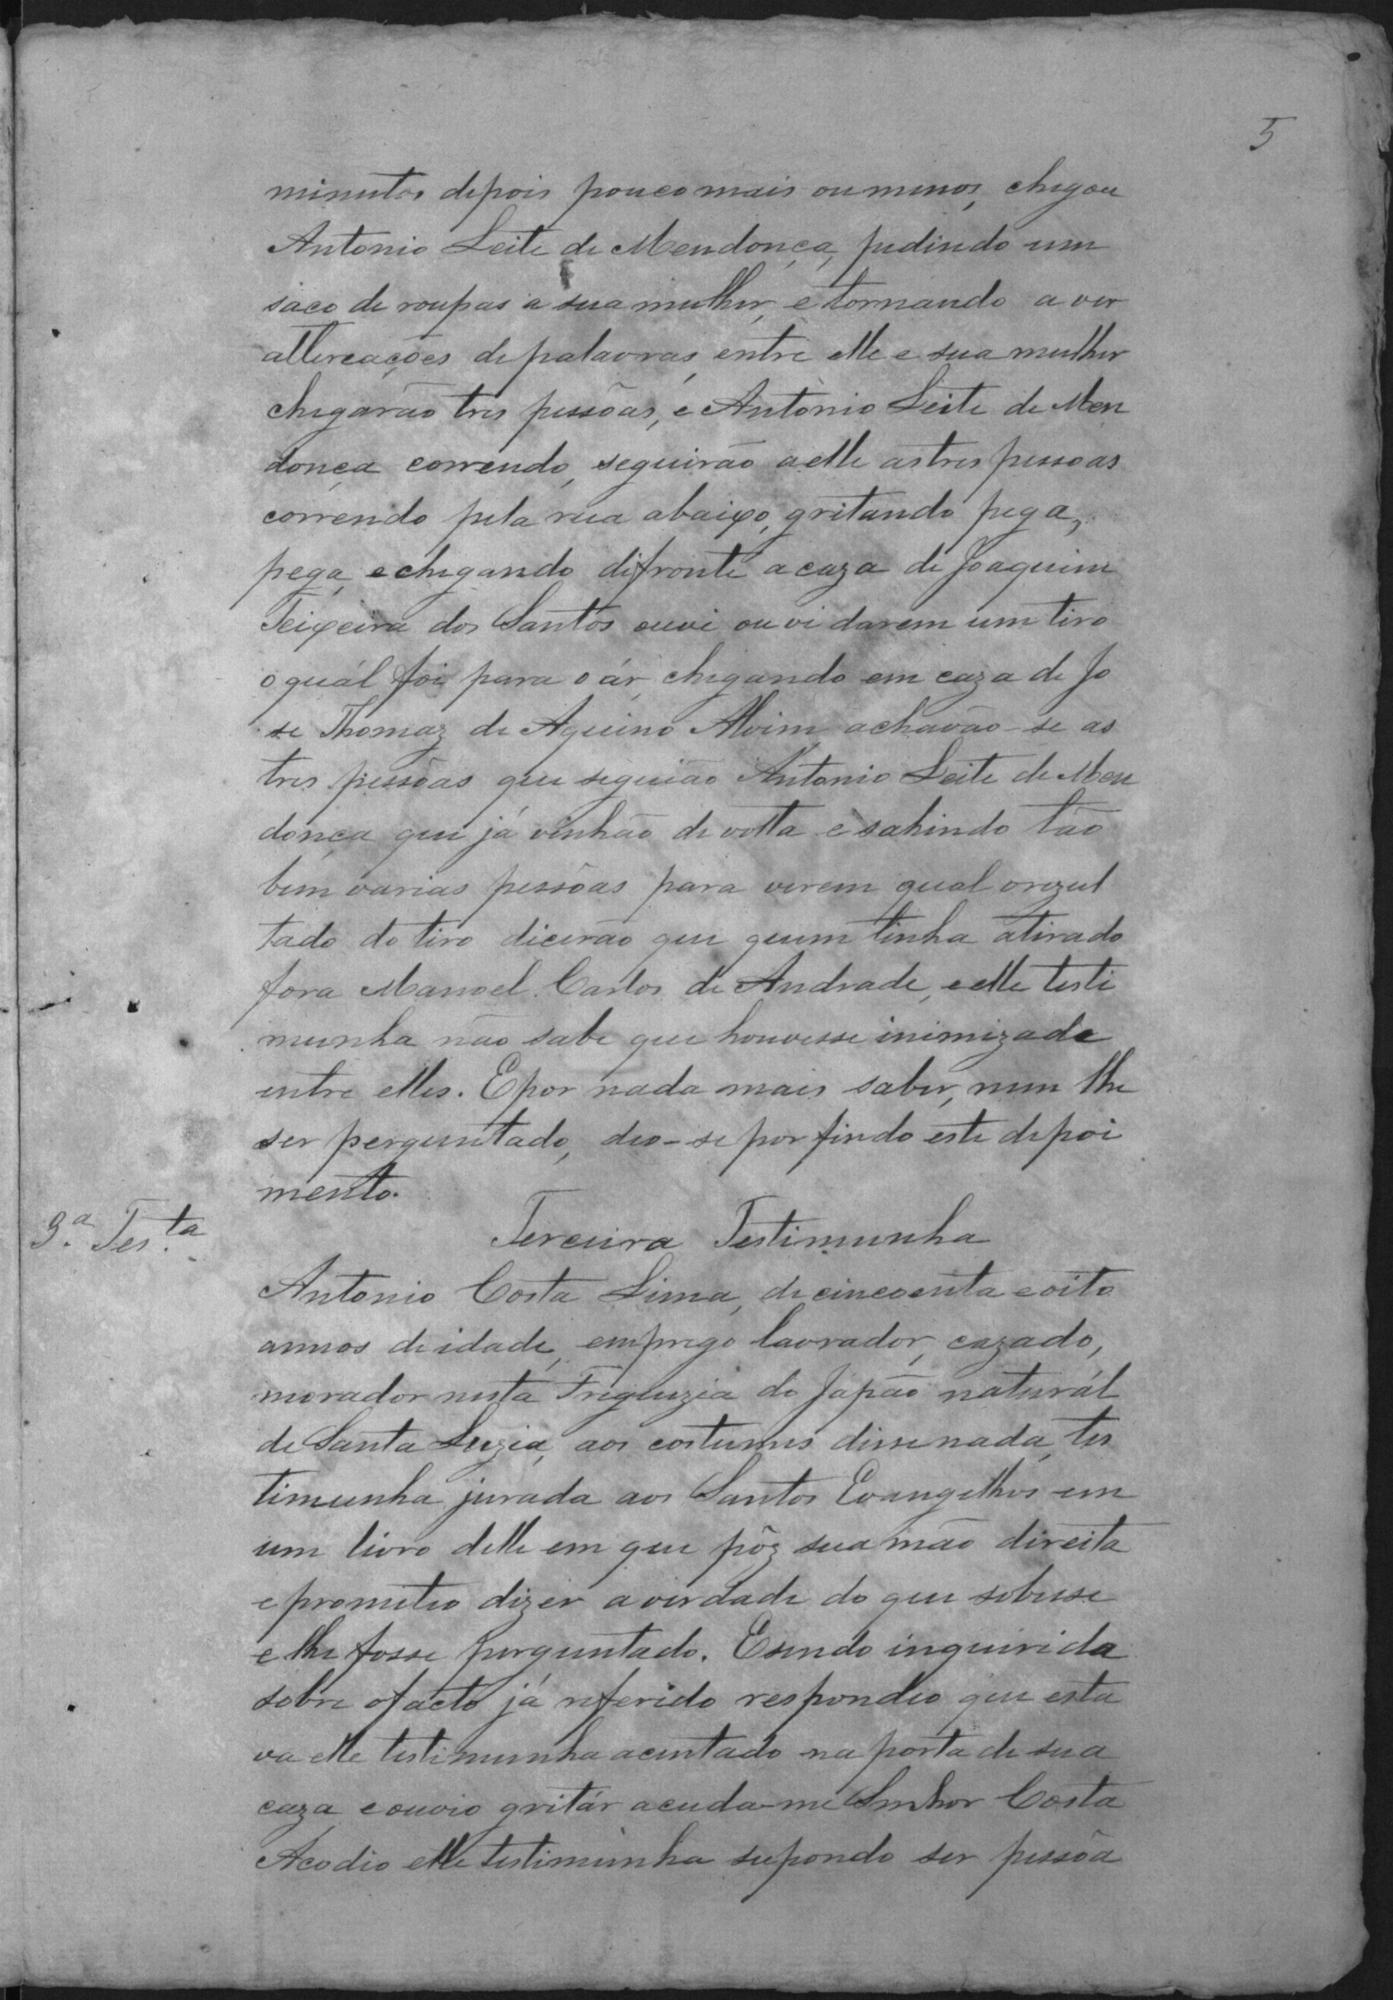 5
minutos depois pouco mais ou menos, chegou
Antonio Leite de Mendonça, pedindo um
saco de roupas a sua mulher, e tornando a ver
altercações de palavras, entre elle e sua mulher
chegarão tres pessôas, e Antonio Leite de Men
donça correndo, seguirão a elle as tres pessoas
correndo pela rua abaixo, gritando pega,
pega, e chegando difronte a caza de Joaquim
Teixeira dos Santos ouvi ouvi darem um tiro
o quál foi para o ár, chegando em caza de Jo
se Thomaz de Aquino Alvim, achavão-se as
tres pessôas que seguião Antonio Leite de Men
donça que já vinhão de volta e sahindo tão
bem varias pessôas para verem qual o rezul
tado do tiro dicerão que quem tinha atirado
fora Manoel Carlos de Andrade, e elle testi
munha não sabe que houvesse inimizade
entre elles. E por nada mais saber, nem lhe
ser perguntado, deo-se por findo este depoi
mento.
3.ª Tes.ta
Terceira Testimunha
Antonio Costa Lima, de cincoenta e oito
annos de idade, emprego lavrador, cazado,
morador nesta Freguezia do Japão naturál
de Santa Luzia, aos costumes disse nada, tes
timunha jurada aos Santos Evangelhos em
um livro delle em que pôz sua mão direita
e prometeo dizer a verdade do que sobesse
e lhe fosse perguntado. E sendo inquirida
sobre o facto já referido respondeo que esta
va elle testimunha acentado na porta de sua
caza, e ouvio gritár acuda-me Senhor Costa
Acodio elle testimunha supondo ser pessôa